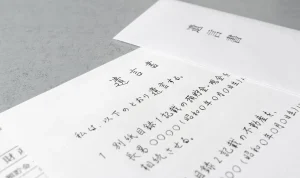 遺言書
遺言書
私は、以下のとおり遺言する。
1 別紙目録1記載の預貯金、現金を
長男〇〇〇〇(昭和〇年〇月〇日生)
相続させる。
目録2記載の不動産を、
〇〇〇(昭和〇年〇月〇日